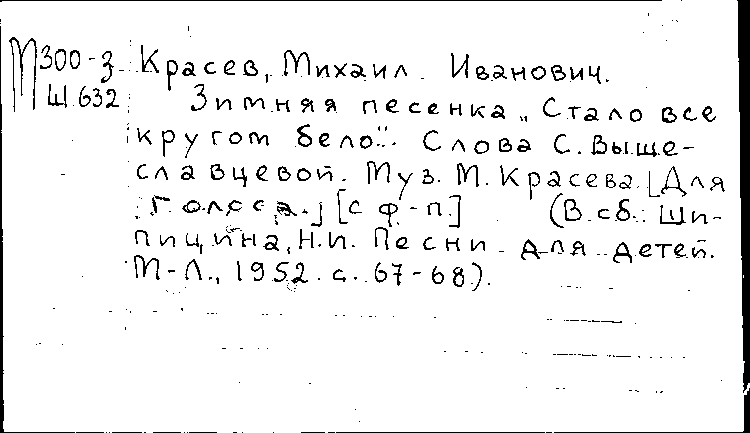 М300-3 Красев, Михаил Иванович.
Ш 632 Зимняя песенка „Стало все
кругом бело". Слова С. Выше-
славцевой. Муз. М. Красева. [Для
голоса.] [с ф-п.] (В сб.: Ши-
пицина, Н.И. Песни для детей.
М-Л., 1952. с. 67-68).